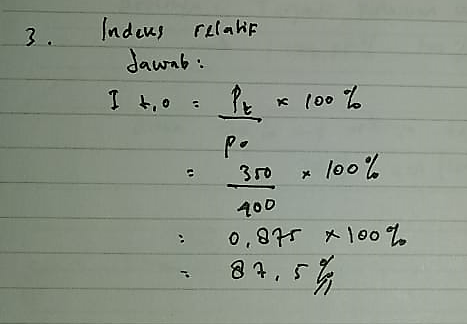 3. Indeks relatif
Jawab:
I t,o = Pt × 100%
Po
= 350 × 100%
400
= 0,875 × 100%
= 87,5%